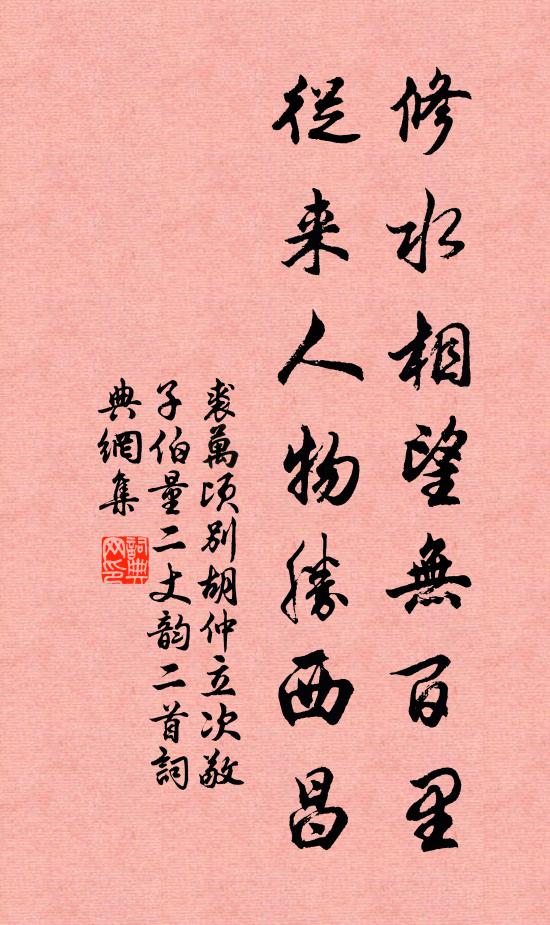 修水相望無百里
従来人物勝西昌
裘萬頃別胡仲立次敬
子伯量二丈韵二首詞
典網集
詞典
网印